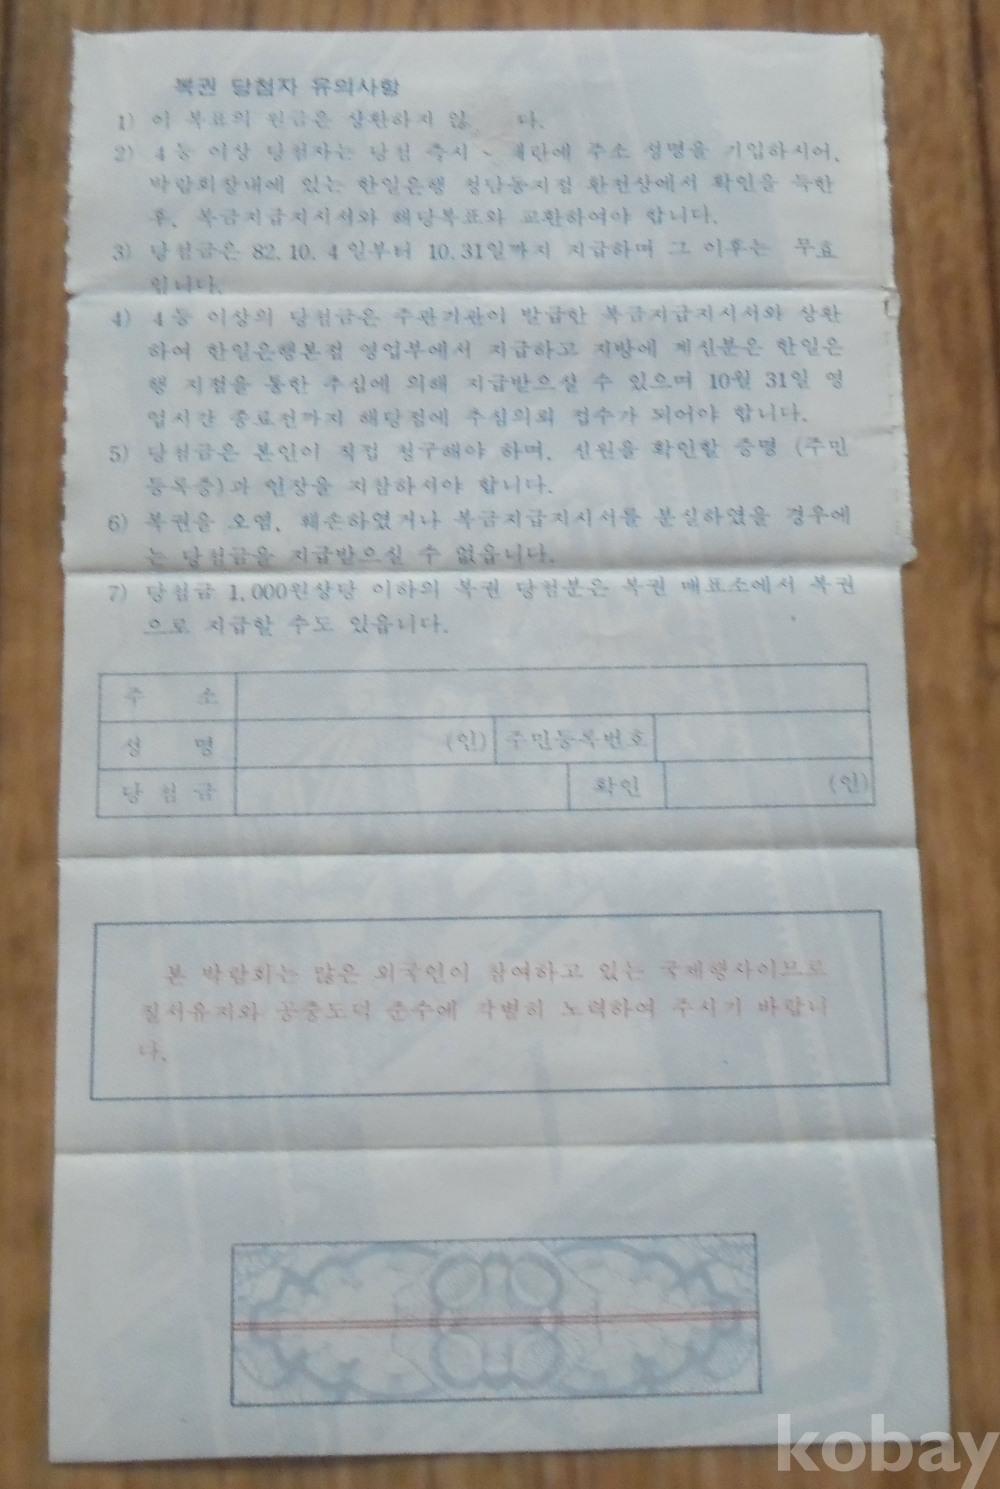 복권 당첨자 유의사항
1) 이 복표의 원금은 상환하지 않 다.
2) 4등 이상 당첨자는 당첨 즉시 주소 성명을 기입하시어,
박람회장내에 있는 한일은행 환전상에서 확인을 득한
후, 복금지급지시서와 해당복표와 교환하여야 합니다.
3) 당첨금은 82. 10. 4일부터 10. 31일까지 지급하며 그 이후는 무효
입니다.
4) 4등 이상의 당첨금은 주관기관이 발급한 복금지급지시서와 상환
하여 한일은행본점 영업부에서 지급하고 지방에 계신분은 한일은
행 지점을 통한 추심에 의해 지급받으실 수 있으며 10월 31일 영
업시간 종료전까지 해당점에 추심의뢰 접수가 되어야 합니다.
5) 당첨금은 본인이 직접 청구해야 하며, 신원을 확인할 증명 (주민
등록증)과 인장을 지참하셔야 합니다.
6) 복권을 오염, 훼손하였거나 복금지급지시서를 분실하였을 경우에
는 당첨금을 지급받으실 수 없읍니다.
7) 당첨금 1,000원상당 이하의 복권 당첨분은 복권 매표소에서 복권
으로 지급할 수도 있읍니다.
주 소
성 명 (인) 주민등록번호
당 첨 금 확인 (인)
본 박람회는 많은 외국인이 참여하고 있는 국제행사이므로
질서유지와 공중도덕 준수에 각별히 노력하여 주시기 바랍니
다.
kobay